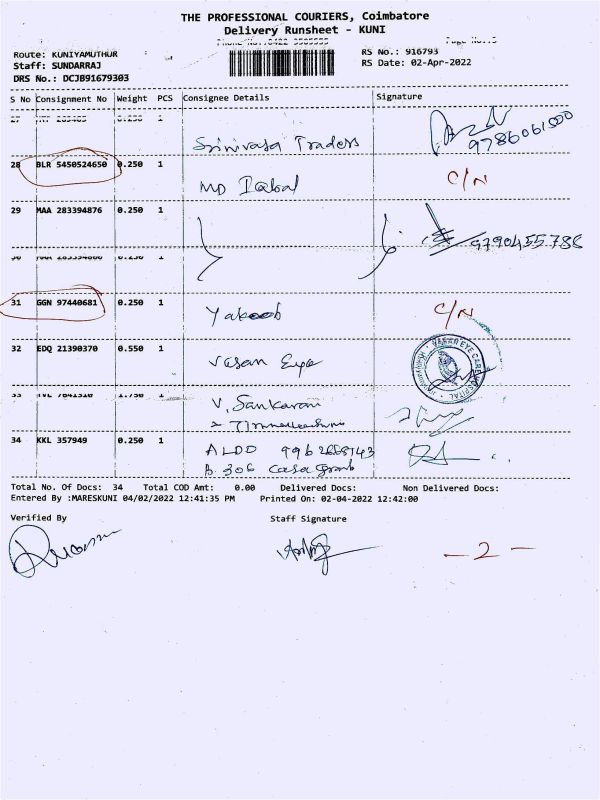 THE PROFESSIONAL COURIERS, Coimbatore
Delivery Runsheet - KUNI
Route: KUNIYAMUTHUR
RS No.: 916793
Staff: SUNDARRAJ
RS Date: 02-Apr-2022
DRS No.: DCJB91679303
S No Consignment No Weight PCS Consignee Details Signature
Srinivasa Traders 9786061500
28 BLR 5450524650 0.250 1 MD Iqbal C/N
29 MAA 283394876 0.250 1 9790455788
31 GGN 97440681 0.250 1 Yakoob C/N
32 EDQ 21390370 0.550 1 Vasan Eye
VASAN EYE CARE HOSPITAL
33 TVL 7841310 1.750 1 V. Sankaran
34 KKL 357949 0.250 1 ALDD
B. 306 Casa Grand
Total No. Of Docs: 34 Total COD Amt: 0.00 Delivered Docs: Non Delivered Docs:
Entered By :MARESKUNI 04/02/2022 12:41:35 PM Printed On: 02-04-2022 12:42:00
Verified By Staff Signature
- 2 -